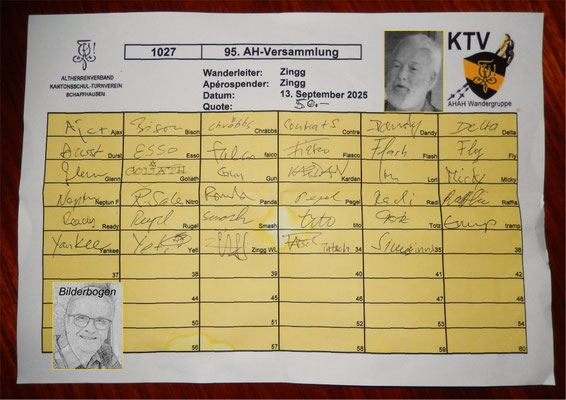 1027 95. AH-Versammlung
KTV
ALTHERRENVERBAND
KANTONSSCHUL-TURNVEREIN
SCHAFFHAUSEN
Wanderleiter: Zingg
Apérospender: Zingg
Datum: 13. September 2025
Quote: 50.-
AHAH Wandergruppe
Ajax Ajax Bison Bison Chräbbs Chräbbs Contra Contra Dandy Dandy Delta Delta
Durst Durst ESSO Esso falco falco Fiasco Fiasco Flash Flash Fly Fly
Glenn Glenn GOLIATH Goliath Gun Gun KARDAN Kardan Lori Lori Micky Micky
Neptun Neptun F Nitro Panda Panda Pegel Pegel Radi Radi Raffia Raffia
Ready Ready Rugel Rugel Smash Smash tito tito Totz Totz tramp tramp
Yankee Yankee Yeti Yeti Zingg WL 34 35 36
37 38 39 40 41 42
Bilderbogen 44 45 46 47 48
50 51 52 53 54
56 57 58 59 60